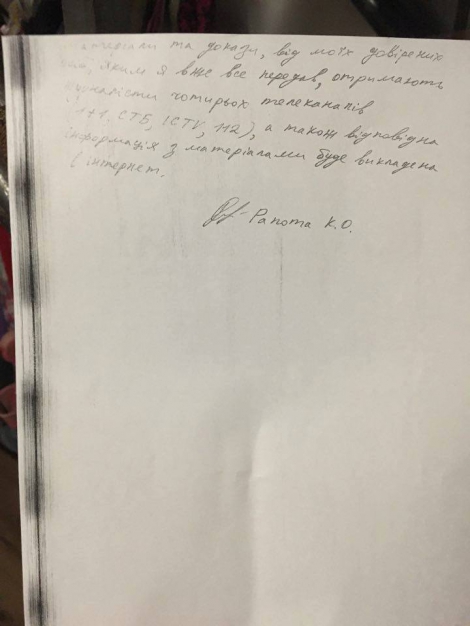 матеріали та докази, від моїх довірених
осіб, яким я вже все передав, отримають
журналісти чотирьох телеканалів
1+1, СТБ, ICTV, 112), а також відповідна
інформація з матеріалами буде викладена
в інтернет.
Рапота К.О.